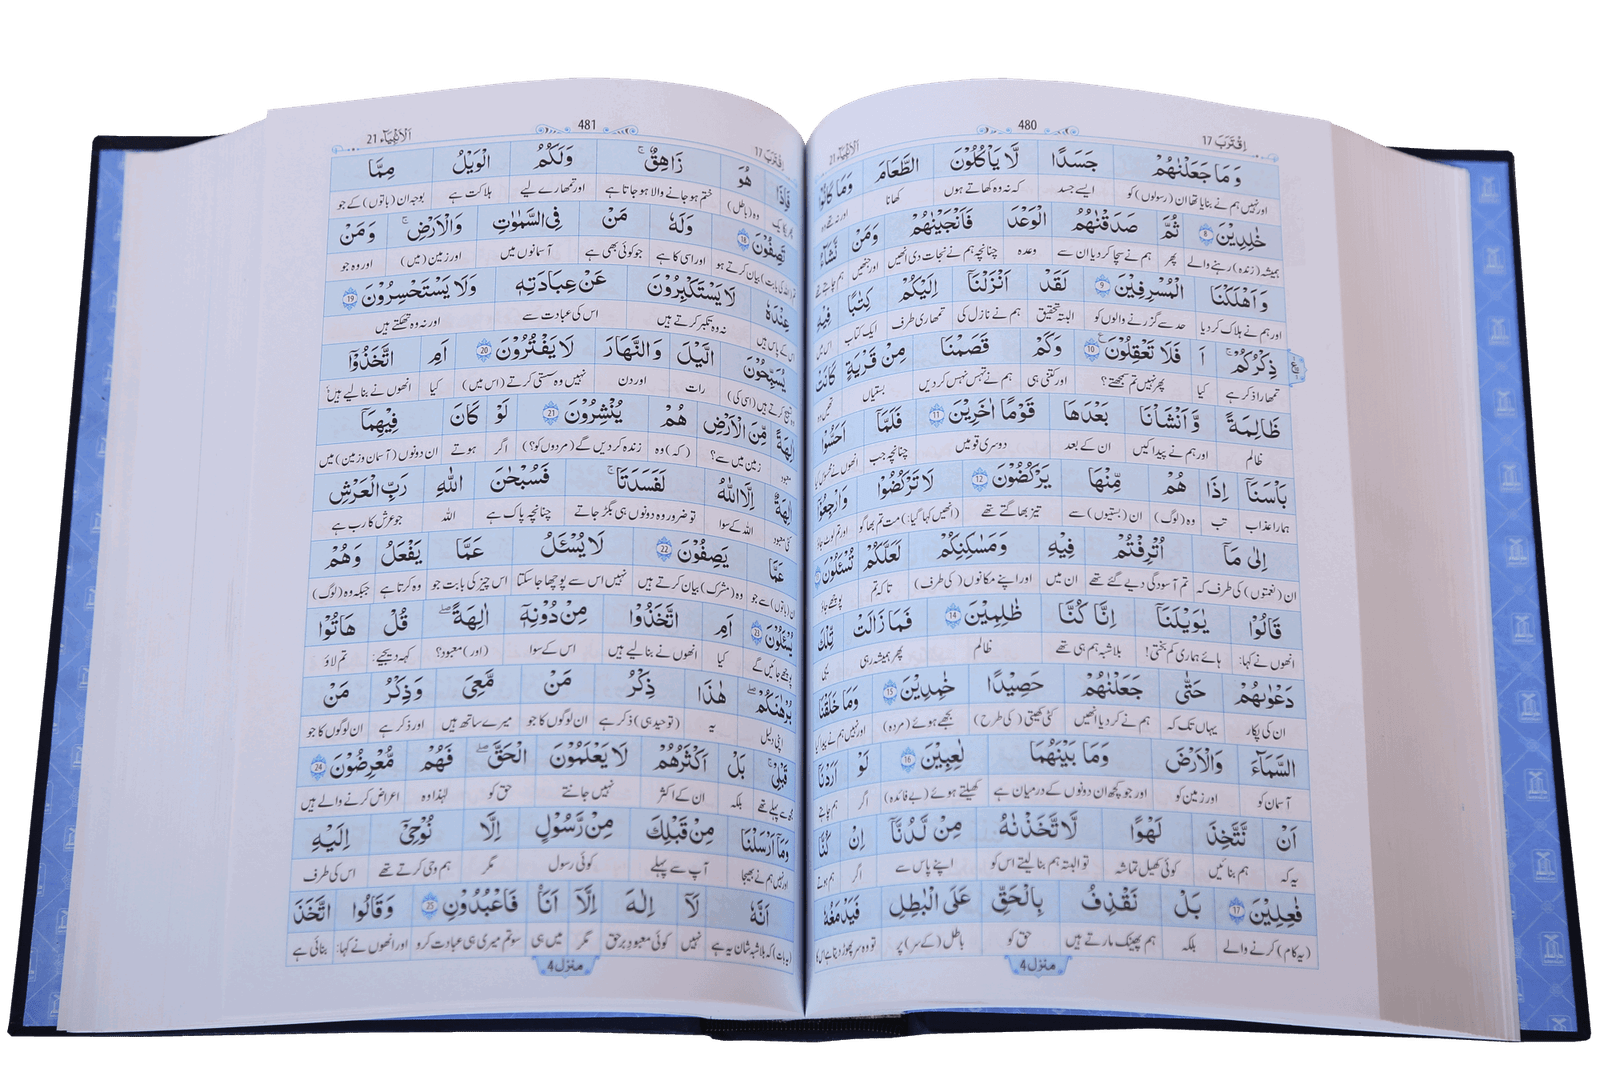 اِقْتَرَبَ 17
480
اَلْاَنْبِيَآء 21
وَمَا جَعَلْنٰهُمْ جَسَدًا لَّا يَاْكُلُوْنَ الطَّعَامَ وَمَا كَانُوْا
اور نہیں ہم نے بنایا تھا ان (رسولوں) کو ایسے جسد کہ نہ وہ کھاتے ہوں کھانا اور نہ تھے وہ
خٰلِدِيْنَ 8 ثُمَّ صَدَقْنٰهُمُ الْوَعْدَ فَاَنْجَيْنٰهُمْ وَمَنْ نَّشَآءُ
ہمیشہ (زندہ) رہنے والے پھر ہم نے سچا کر دیا ان سے وعدہ چنانچہ ہم نے نجات دی انھیں اور جنھیں ہم چاہتے تھے
وَاَهْلَكْنَا الْمُسْرِفِيْنَ 9 لَقَدْ اَنْزَلْنَآ اِلَيْكُمْ كِتٰبًا فِيْهِ
اور ہم نے ہلاک کر دیا حد سے گزرنے والوں کو البتہ تحقیق ہم نے نازل کی تمھاری طرف ایک کتاب اس میں
ذِكْرُكُمْ ۭ اَ فَلَا تَعْقِلُوْنَ 10 وَكَمْ قَصَمْنَا مِنْ قَرْيَةٍ كَانَتْ
تمھارا ذکر ہے کیا پھر نہیں تم سمجھتے؟ اور کتنی ہی ہم نے تہس نہس کر دیں بستیاں
ظَالِمَةً وَّاَنْشَاْنَا بَعْدَهَا قَوْمًا اٰخَرِيْنَ 11 فَلَمَّآ اَحَسُّوْا
ظالم اور ہم نے پیدا کیں ان کے بعد دوسری قومیں چنانچہ جب
بَاْسَنَآ اِذَا هُمْ مِّنْهَا يَرْكُضُوْنَ 12 لَا تَرْكُضُوْا وَارْجِعُوْٓا
ہمارا عذاب تب وہ (لوگ) ان (بستیوں) سے تیز بھاگتے تھے (انھیں کہا گیا:) مت تم بھاگو اور تم لوٹ جاؤ
اِلٰى مَآ اُتْرِفْتُمْ فِيْهِ وَمَسٰكِنِكُمْ لَعَلَّكُمْ تُسْـَٔلُوْنَ
ان (نعمتوں) کی طرف کہ تم آسودگی دیے گئے تھے ان میں اور اپنے مکانوں (کی طرف) تا کہ تم پوچھے جاؤ
قَالُوْا يٰوَيْلَنَآ اِنَّا كُنَّا ظٰلِمِيْنَ 14 فَمَا زَالَتْ تِّلْكَ
انھوں نے کہا: ہائے ہماری کم بختی! بلاشبہ ہم ہی تھے ظالم پھر ہمیشہ رہی یہی
دَعْوٰىهُمْ حَتّٰى جَعَلْنٰهُمْ حَصِيْدًا خٰمِدِيْنَ 15 وَمَا خَلَقْنَا
ان کی پکار یہاں تک کہ ہم نے کر دیا انھیں کٹی کھیتی (کی طرح) بجھے ہوئے (مردہ) اور نہیں ہم نے پیدا کیا
السَّمَآءَ وَالْاَرْضَ وَمَا بَيْنَهُمَا لٰعِبِيْنَ 16 لَوْ اَرَدْنَآ
آسمان کو اور زمین کو اور جو کچھ ان دونوں کے درمیان ہے کھیلتے ہوئے (بے فائدہ) اگر ہم چاہتے
اَنْ نَّتَّخِذَ لَهْوًا لَّاتَّخَذْنٰهُ مِنْ لَّدُنَّآ اِنْ كُنَّا
یہ کہ ہم بنائیں کوئی کھیل تماشہ تو البتہ ہم بنا لیتے اس کو اپنے پاس سے اگر ہم ہوتے
فٰعِلِيْنَ 17 بَلْ نَقْذِفُ بِالْحَقِّ عَلَى الْبَاطِلِ فَيَدْمَغُهٗ
(یہ کام) کرنے والے بلکہ ہم پھینک مارتے ہیں حق کو باطل (کے سر) پر
منزل 4
اِقْتَرَبَ 17
481
اَلْاَنْبِيَآء 21
فَاِذَا هُوَ زَاهِقٌ ۭ وَلَكُمُ الْوَيْلُ مِمَّا
وہ (باطل) ختم ہو جانے والا ہو جاتا ہے اور تمھارے لیے ہلاکت ہے بوجہ ان (باتوں) کے جو
تَصِفُوْنَ 18 وَلَهٗ مَنْ فِى السَّمٰوٰتِ وَالْاَرْضِ ۭ وَمَنْ
بیان کرتے ہو اور اسی کا ہے جو کوئی بھی ہے آسمانوں میں اور زمین (میں) اور وہ جو
عِنْدَهٗ لَا يَسْتَكْبِرُوْنَ عَنْ عِبَادَتِهٖ وَلَا يَسْتَحْسِرُوْنَ 19
اس کے پاس ہیں نہ وہ تکبر کرتے ہیں اس کی عبادت سے اور نہ وہ تھکتے ہیں
يُسَبِّحُوْنَ الَّيْلَ وَالنَّهَارَ لَا يَفْتُرُوْنَ 20 اَمِ اتَّخَذُوْٓا
وہ تسبیح کرتے ہیں (اسی کی) رات اور دن نہیں وہ سستی کرتے (اس میں) کیا انھوں نے بنا لیے ہیں
اٰلِهَةً مِّنَ الْاَرْضِ هُمْ يُنْشِرُوْنَ 21 لَوْ كَانَ فِيْهِمَآ
معبود زمین میں سے؟ (کہ) وہ زندہ کر دیں گے (مردوں کو)؟ اگر ہوتے ان دونوں (آسمان و زمین) میں
اٰلِهَةٌ اِلَّا اللّٰهُ لَفَسَدَتَا ۚ فَسُبْحٰنَ اللّٰهِ رَبِّ الْعَرْشِ
کئی معبود اللہ کے سوا تو ضرور وہ دونوں ہی بگڑ جاتے چنانچہ پاک ہے اللہ جو عرش کا رب ہے
عَمَّا يَصِفُوْنَ 22 لَا يُسْـَٔلُ عَمَّا يَفْعَلُ وَهُمْ
ان (باتوں) سے جو وہ (مشرک) بیان کرتے ہیں نہیں اس سے پوچھا جا سکتا اس چیز کی بابت جو وہ کرتا ہے جبکہ وہ (لوگ)
يُسْـَٔلُوْنَ 23 اَمِ اتَّخَذُوْا مِنْ دُوْنِهٖٓ اٰلِهَةً ۭ قُلْ هَاتُوْا
پوچھے جائیں گے کیا انھوں نے بنا لیے ہیں اس کے سوا (اور) معبود؟ کہہ دیجیے: تم لاؤ
بُرْهَانَكُمْ ۚ هٰذَا ذِكْرُ مَنْ مَّعِىَ وَذِكْرُ مَنْ
اپنی دلیل یہ (توحید ہی) ذکر ہے ان لوگوں کا جو میرے ساتھ ہیں اور ذکر ہے ان لوگوں کا جو
قَبْلِىْ ۭ بَلْ اَكْثَرُهُمْ لَا يَعْلَمُوْنَ الْحَقَّ فَهُمْ مُّعْرِضُوْنَ 24
مجھ سے پہلے تھے بلکہ ان کے اکثر نہیں جانتے حق کو لہٰذا وہ اعراض کرنے والے ہیں
وَمَآ اَرْسَلْنَا مِنْ قَبْلِكَ مِنْ رَّسُوْلٍ اِلَّا نُوْحِىْٓ اِلَيْهِ
اور نہیں ہم نے بھیجا آپ سے پہلے کوئی رسول مگر ہم وحی کرتے تھے اس کی طرف
اَنَّهٗ لَآ اِلٰهَ اِلَّآ اَنَا فَاعْبُدُوْنِ 25 وَقَالُوا اتَّخَذَ
(یہ بات) کہ بلاشبہ شان یہ ہے نہیں کوئی معبود برحق مگر میں ہی سو تم میری ہی عبادت کرو اور انھوں نے کہا: بنائی ہے
منزل 4